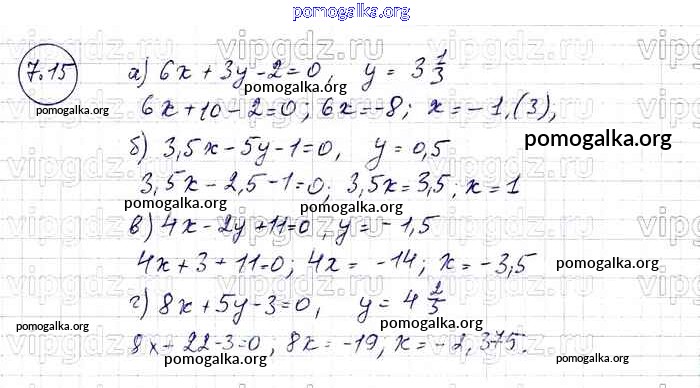 pomogalka.org
7.15
а) 6x + 3y - 2 = 0, y = 3 1/3
6x + 10 - 2 = 0; 6x = -8; x = -1,(3);
б) 3,5x - 5y - 1 = 0, y = 0,5
3,5x - 2,5 - 1 = 0; 3,5x = 3,5; x = 1
в) 4x - 2y + 11 = 0, y = -1,5
4x + 3 + 11 = 0; 4x = -14; x = -3,5
г) 8x + 5y - 3 = 0, y = 4 2/3
8x + 22 - 3 = 0; 8x = -19; x = -2,375.
pomogalka.org
pomogalka.org
pomogalka.org
pomogalka.org
pomogalka.org
pomogalka.org
pomogalka.org
pomogalka.org
pomogalka.org
pomogalka.org